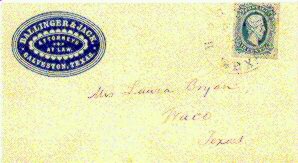 BALLINGER & JACK,
ATTORNEYS
AT LAW,
GALVESTON, TEXAS.
Mrs Laura Bryan,
Waco
Texas